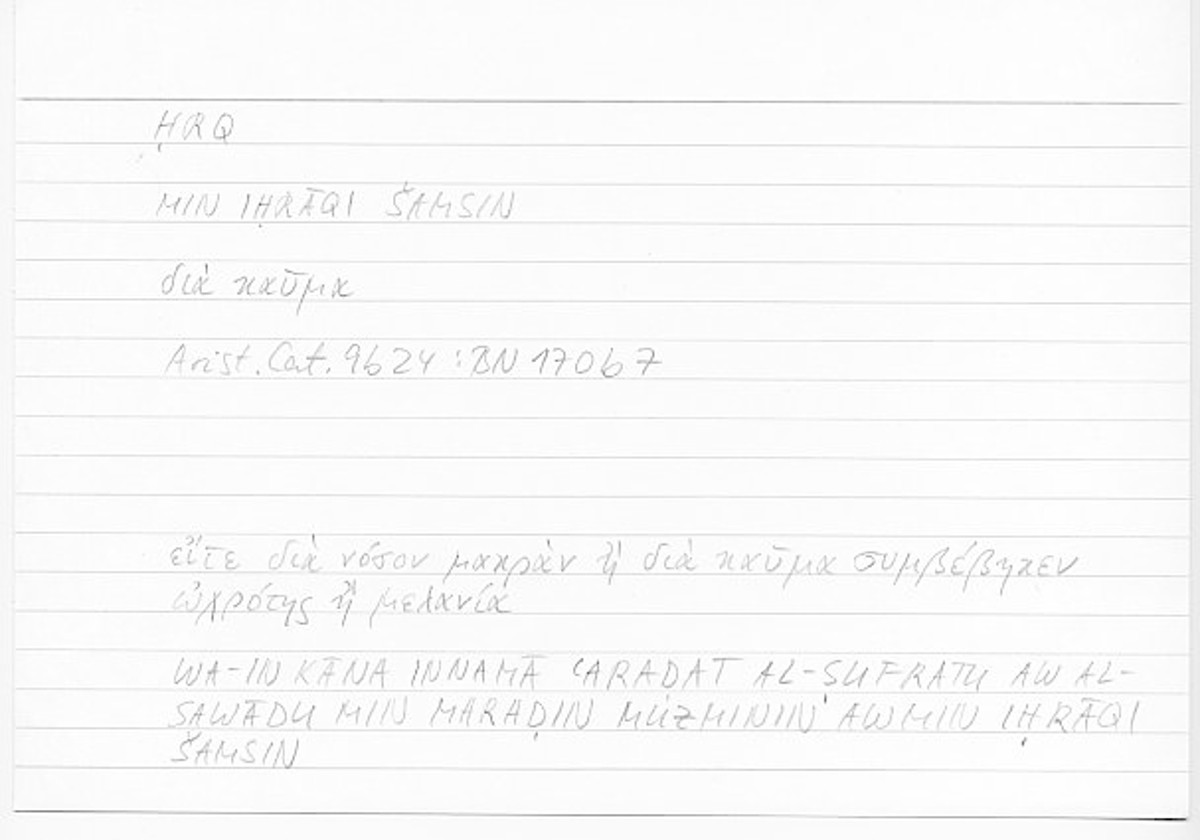 ḤRQ
MIN IḤRĀQI ŠAMSIN
διὰ καῦμα
Arist. Cat. 9b24 : BN 170b7
εἴτε διὰ νόσον μακρὰν ἢ διὰ καῦμα συμβέβηκεν
ὠχρότης ἢ μελανία
WA-IN KĀNA INNAMĀ ʿARAḌAT AL-ṢUFRATU AW AL-
SAWĀDU MIN MARAḌIN MUZMININ AW MIN IḤRĀQI
ŠAMSIN